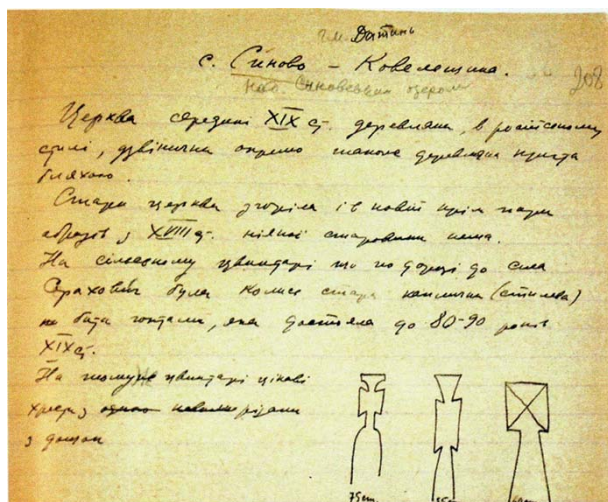 гм. Датинь
с. Сіново – Ковельщина.
над Синовським озером
208
Церква середини XIX ст. деревляна, в російському
стилі, дзвінична окремо також деревляна крита
бляхою.
Стара церква згоріла і в новій крім пари
образів з XVIII ст. ніякої старовини нема.
На сільському цвинтарі що по дорозі до села
була колись стара каплична (стилева)
бита гонтами, яка достояла до 80-90 років
XIX ст.
На тому цвинтарі цікаві
хрести різані
з дощок
75cm.